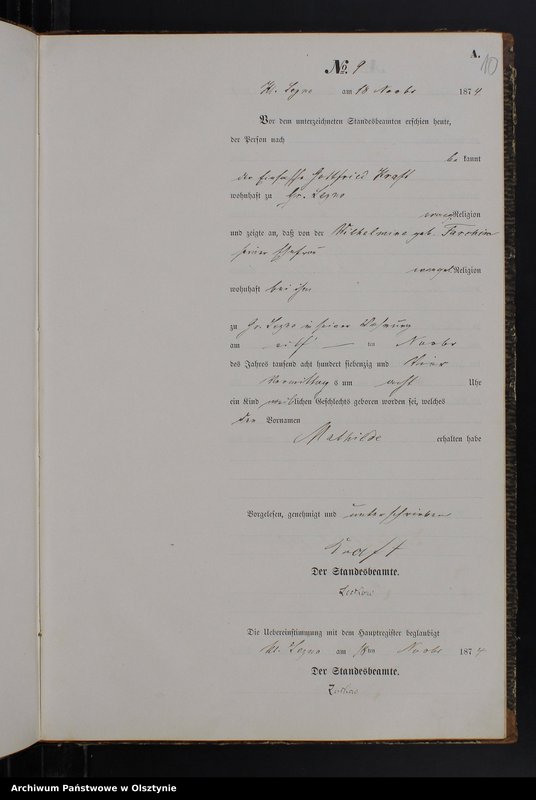 A.
10
No. 9
Kl. Lezno am 18 Novbr 1874
Vor dem unterzeichneten Standesbeamten erschien heute,
der Person nach
be kannt
der Einsasse Gottfried Kraft
wohnhaft zu Gr. Lezno
evang. Religion
und zeigte an, daß von der Wilhelmine geb.
seiner Ehefrau
evangel. Religion
wohnhaft bei ihm
zu Gr. Lezno in seiner Wohnung
am elf ten Novbr
des Jahres tausend acht hundert siebenzig und vier
Vormittag s um acht Uhr
ein Kind weiblichen Geschlechts geboren worden sei, welches
den Vornamen
Mathilde erhalten habe
Vorgelesen, genehmigt und unterschrieben
Kraft
Der Standesbeamte.
Die Uebereinstimmung mit dem Hauptregister beglaubigt
Kl. Lezno am 18ten Novbr 1874
Der Standesbeamte.
Archiwum Państwowe w Olsztynie